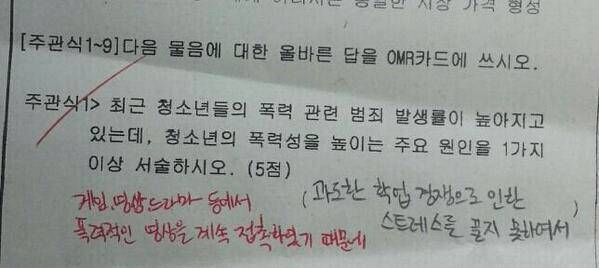 [주관식1~9]다음 물음에 대한 올바른 답을 OMR카드에 쓰시오.
주관식1> 최근 청소년들의 폭력 관련 범죄 발생률이 높아지고
있는데, 청소년의 폭력성을 높이는 주요 원인을 1가지
이상 서술하시오. (5점)
게임, 영상드라마 등에서
폭력적인 영상을 계속 접촉하였기 때문에
(과도한 학업 경쟁으로 인한
스트레스를 풀지 못하여서)